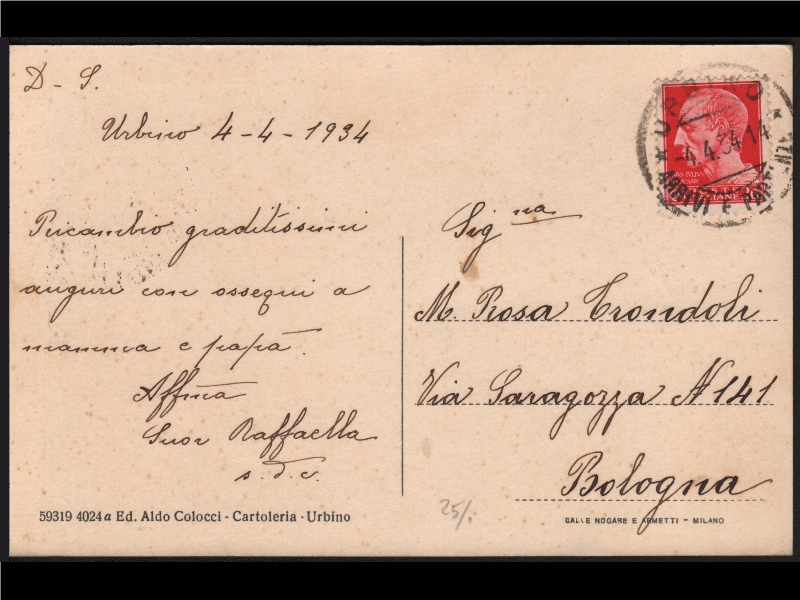 D - S.
Urbino 4-4-1934
Ricambio graditissimi
auguri con ossequi a
mamma e papà.
Affma
Suor Raffaella
s. d. c.
59319 4024a Ed. Aldo Colocci - Cartoleria - Urbino
URBINO
-4.4.34 14
ARRIVI E PARTENZE
POSTE
ITALIANE
Sig na
M. Rosa Trondoli
Via Saragozza N 141
Bologna
25/.
GALLE NOGARE E ARMETTI - MILANO